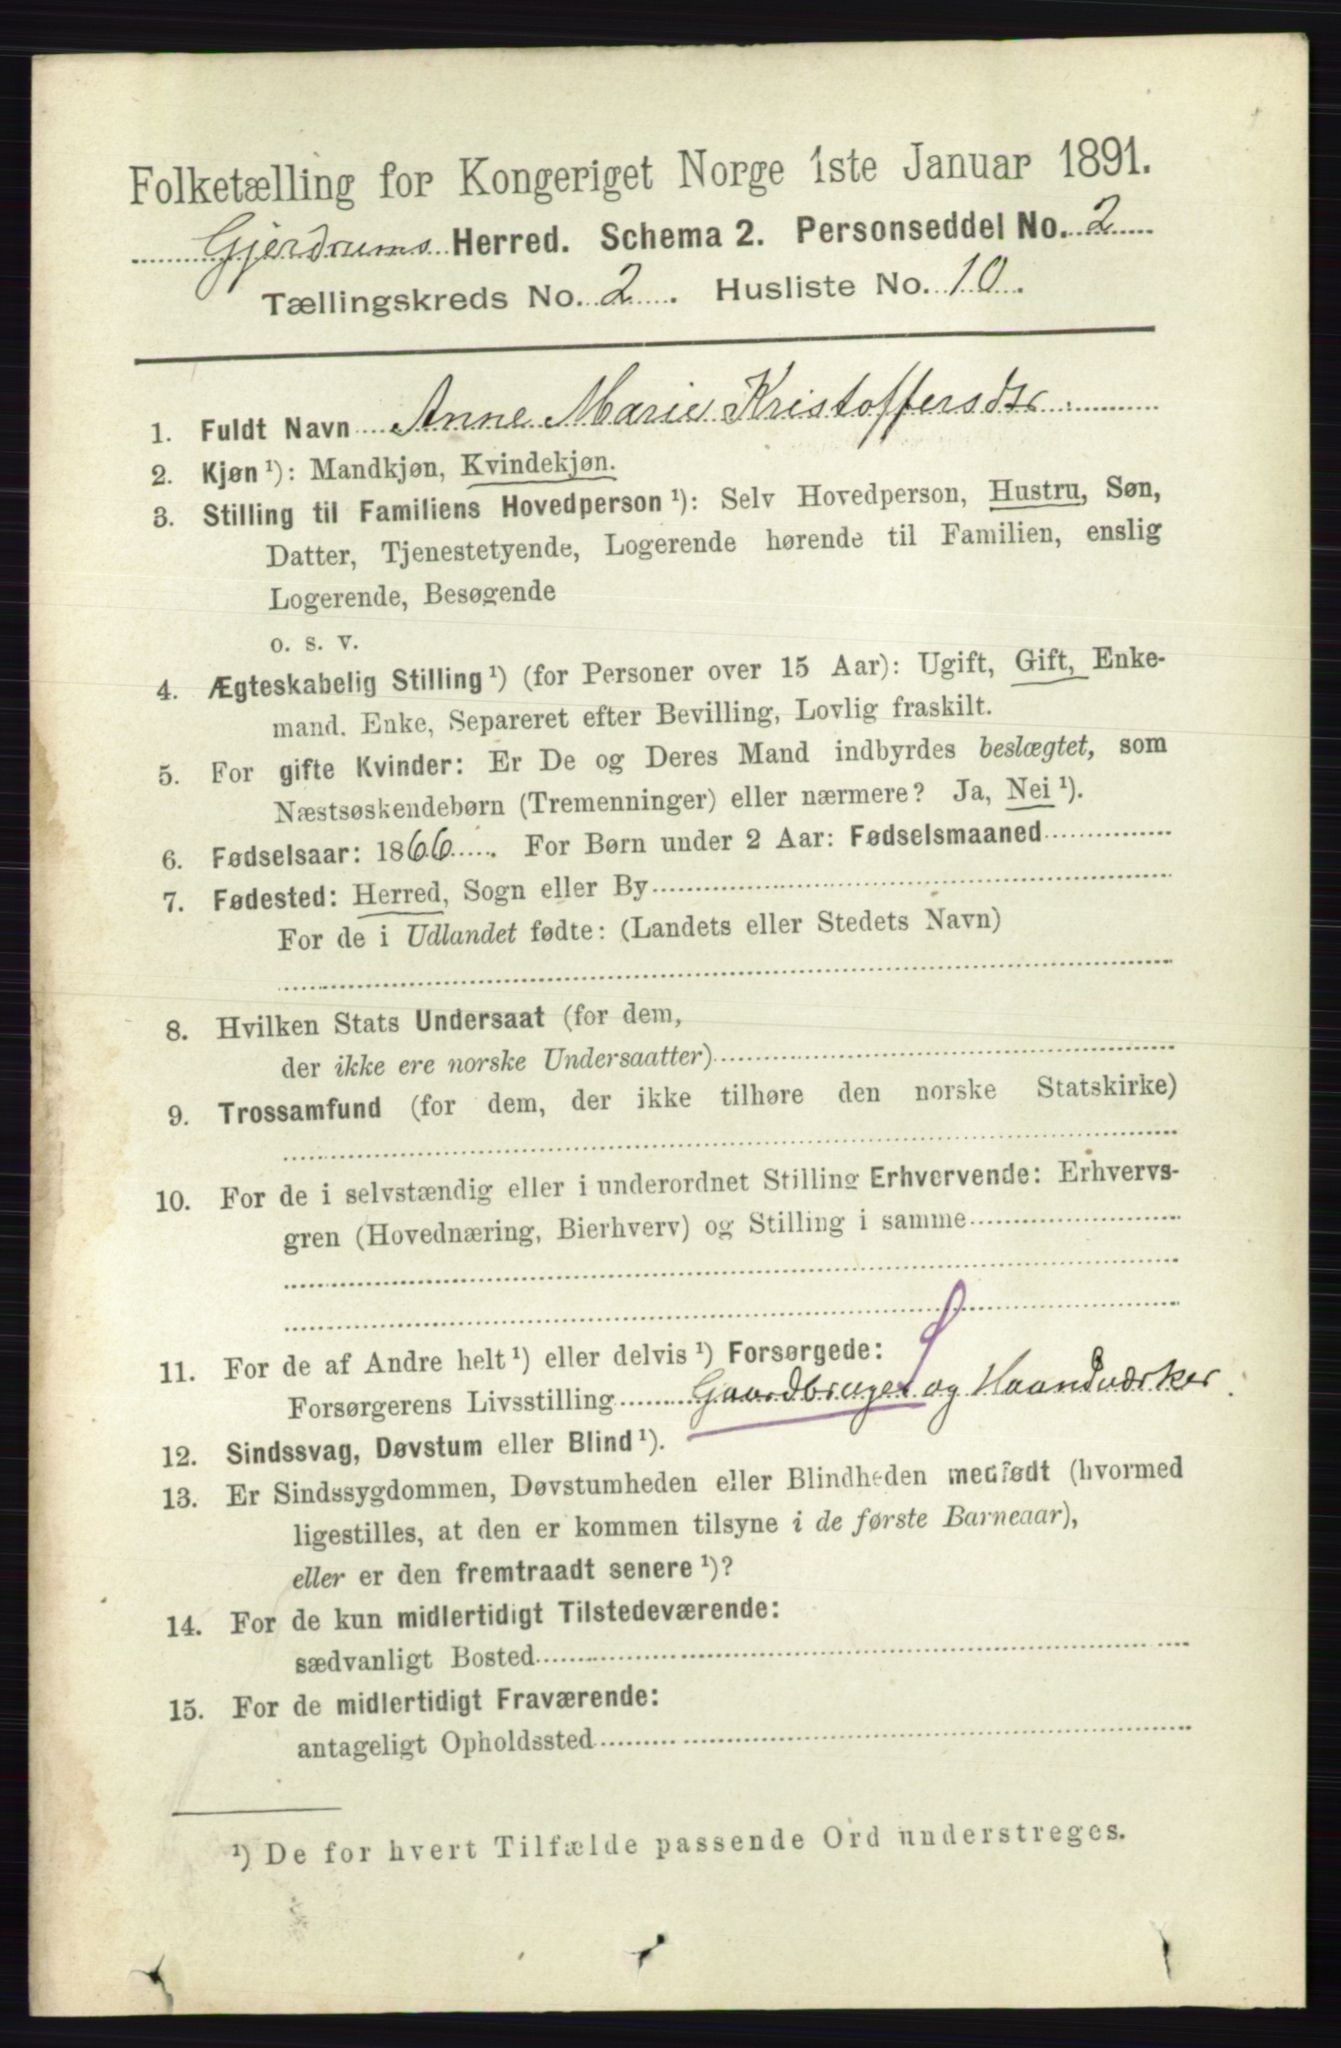 Folketælling for Kongeriget Norge 1ste Januar 1891.
Gjerdrums Herred. Schema 2. Personseddel No. 2
Tællingskreds No. 2. Husliste No. 10.
1. Fuldt Navn Anne Marie Kristoffersdtr.
2. Kjøn ¹): Mandkjøn, Kvindekjøn.
3. Stilling til Familiens Hovedperson ¹): Selv Hovedperson, Hustru, Søn,
Datter, Tjenestetyende, Logerende hørende til Familien, enslig
Logerende, Besøgende
o. s. v.
4. Ægteskabelig Stilling ¹) (for Personer over 15 Aar): Ugift, Gift, Enke-
mand. Enke, Separeret efter Bevilling, Lovlig fraskilt.
5. For gifte Kvinder: Er De og Deres Mand indbyrdes beslægtet, som
Næstsøskendebørn (Tremenninger) eller nærmere? Ja, Nei ¹).
6. Fødselsaar: 1866. For Børn under 2 Aar: Fødselsmaaned
7. Fødested: Herred, Sogn eller By
For de i Udlandet fødte: (Landets eller Stedets Navn)
8. Hvilken Stats Undersaat (for dem,
der ikke ere norske Undersaatter)
9. Trossamfund (for dem, der ikke tilhøre den norske Statskirke)
10. For de i selvstændig eller i underordnet Stilling Erhvervende: Erhvervs-
gren (Hovednæring, Bierhverv) og Stilling i samme
11. For de af Andre helt ¹) eller delvis ¹) Forsørgede:
Forsørgerens Livsstilling Gaardbruger og Haandværker.
12. Sindssvag, Døvstum eller Blind ¹).
13. Er Sindssygdommen, Døvstumheden eller Blindheden medfødt (hvormed
ligestilles, at den er kommen tilsyne i de første Barneaar),
eller er den fremtraadt senere ¹)?
14. For de kun midlertidigt Tilstedeværende:
sædvanligt Bosted
15. For de midlertidigt Fraværende:
antageligt Opholdssted
¹) De for hvert Tilfælde passende Ord understreges.